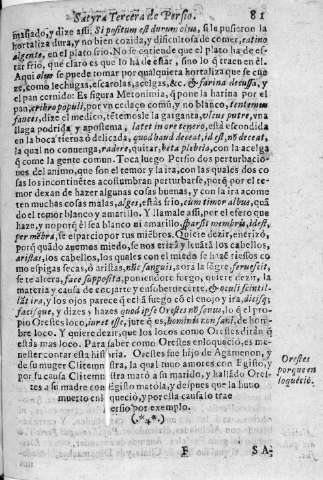 Satyra Tercera de Persio. 81
masiado, y dize assi. Si positum est durum olus, si le pusieron la
hortaliza dura, y no bien cozida, y dificultosa de comer, catino
algente, en el plato frio. No se entiende que el plato ha de es-
tar frio, que claro es que lo ha de estar, sino lo q̃ traen en èl.
Aqui olus se puede tomar por qualquiera hortaliza que se cue-
ze, como lechugas, escarolas, acelgas, &c. & farina decussa, y
el pan cernido: Es figura Metonimia, q̃ pone la harina por el
pan, cribro populi, por vn cedaço comũ, y no blanco, tentemus
fauces, dize el medico, tẽtemosle la garganta, vlcus putre, vna
llaga podrida y apostema, latet in ore tenero, està escondida
en la boca tierna ò delicada, quod haud deceat, id est, no deceat,
la qual no conuenga, radere, quitar, beta plebeia, con la acelga
q̃ come la gente comun. Toca luego Persio dos perturbacio-
nes del animo, que son el temor y la ira, con las quales dos co
sas los incontinẽtes acostumbran perturbarse, porq̃ por el te-
mor dexan de hazer algunas cosas buenas, y con la ira acome
ten muchas cosas malas, alges, estàs frio, cum timor albus, quã
do el temor blanco y amarillo. Y llamale assi, por el efeto que
haze, y no porq̃ èl sea blanco ni amarillo, sparsit membris, idest,
per mẽbra, se esparcio por tus miẽbros. Quiere dezir, eneriçò,
porq̃ quãdo auemos miedo, se nos eriza y leuãtã los cabellos,
aristas, los cabellos, los quales con el miedo se hazẽ tiessos co
mo espigas secas, ò aristas, nũc sanguis, aora la sãgre, feruescit,
se te altera, face supposita, poniendote fuego, quiere dezir, la
materia y causa de enojarte y ensoberuecerte, & oculi scintil-
lãt ira, y los ojos parece q̃ echã fuego cõ el enojo y ira, dicisq;
facisque, y dizes y hazes quod ipse Orestes nõ sanus, lo q̃ el pro
pio Orestes loco, iuret esse, jure q̃ es, hominis non sani, de hom-
bre loco. Y quiere dezir, que los locos como Orestes dirãn q̃
estàs mas loco. Para saber como Orestes enloqueciò, es me-
nester contar esta historia. Orestes fue hijo de Agamenon, y
de su muger Clitemnestra, la qual tuuo amores con Egisto, y
por su causa Clitemnestra matò a su marido, y hallãdo Ores-
tes a su madre con Egisto matòla, y despues que la huuo
muerto enloqueciò, y por esta causa lo trae
Persio por exemplo.
(.*.)
Orestes
porque en
loqueciò.
F SA-